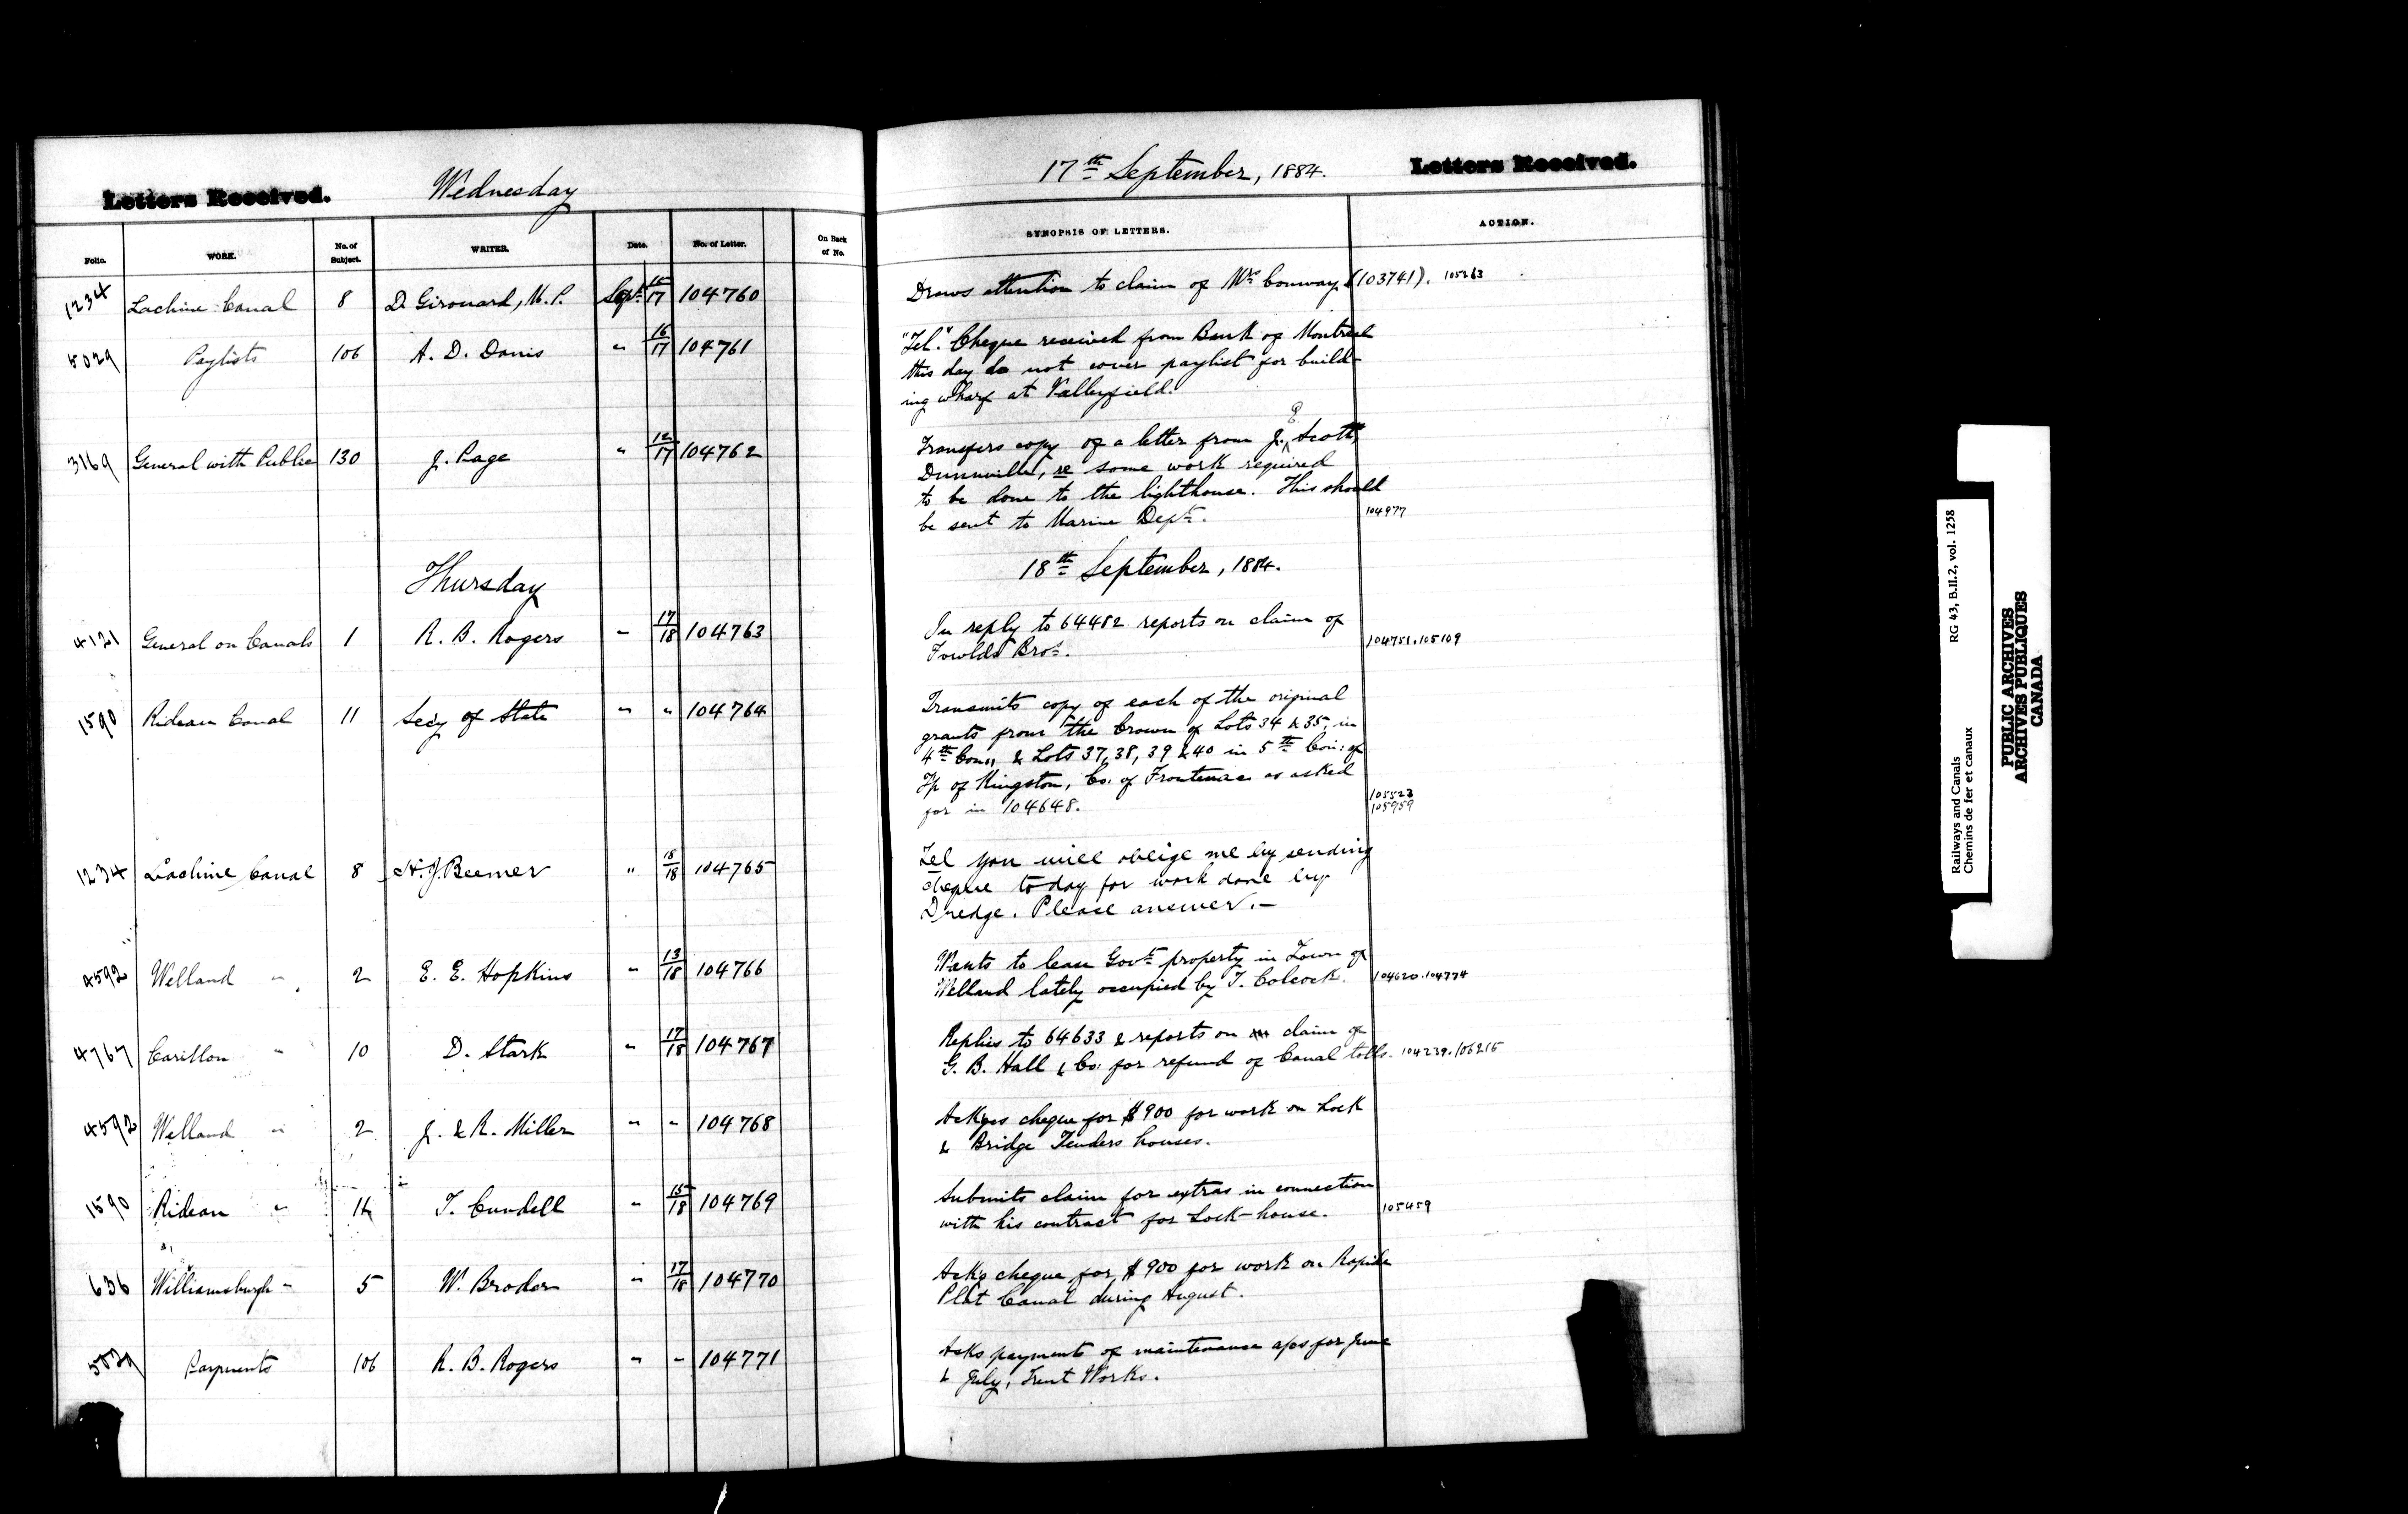 Letters Received. Wednesday 17th September, 1884. Letters Received.
Folio. WORK. No. of Subject. WRITER. Date. No. of Letter. On Back of No. SYNOPSIS OF LETTERS. ACTION.
1234 Lachine Canal 8 D. Girouard, M.P. Sept. 15/17 104760 Draws attention to claim of Mrs Conway (103741). 105263
5029 Paylists 106 A. D. Danis " 16/17 104761 "Tel." Cheque received from Bank of Montreal
this day do not cover paylist for build-
ing wharf at Valleyfield.
3169 General with Public 130 J. Page " 12/17 104762 Transfers copy of a letter from J. E. Scott,
Dunnville, re some work required
to be done to the lighthouse. This should
be sent to Marine Dept. 104977
Thursday 18th September, 1884.
4121 General on Canals 1 R. B. Rogers " 17/18 104763 In reply to 64482 reports on claim of
Fowlds Bros. 104751.105109
1590 Rideau Canal 11 Secy of State " " 104764 Transmits copy of each of the original
grants from the Crown of Lots 34 & 35, in
4th Con,, & Lots 37, 38, 39 & 40 in 5th Con: of
Tp of Kingston, Co. of Frontenac as asked
for in 104648. 105523
105959
1234 Lachine Canal 8 H. J. Beemer " 18/18 104765 Tel you will oblige me by sending
cheque today for work done by
Dredge. Please answer.—
4592 Welland " 2 E. E. Hopkins " 13/18 104766 Wants to lease Govt property in Town of
Welland lately occupied by T. Colcock. 104620.104774
4767 Carillon " 10 D. Stark " 17/18 104767 Replies to 64633 & reports on claim of
G. B. Hall & Co. for refund of Canal tolls. 104239.106215
4592 Welland " 2 J. & R. Miller " " 104768 Ackges cheque for $900 for work on Lock
& Bridge Tenders houses.
1590 Rideau " 11 T. Cundell " 15/18 104769 Submits claim for extras in connection
with his contract for Lock-house. 105459
636 Williamsburgh " 5 W. Broder " 17/18 104770 Acks cheque for $900 for work on Rapide
Plat Canal during August.
5029 Payments 106 R. B. Rogers " " 104771 Asks payments of maintenance a/cs for June
& July, Trent Works.
Railways and Canals RG 43, B.II.2, vol. 1258
Chemins de fer et canaux
PUBLIC ARCHIVES
ARCHIVES PUBLIQUES
CANADA